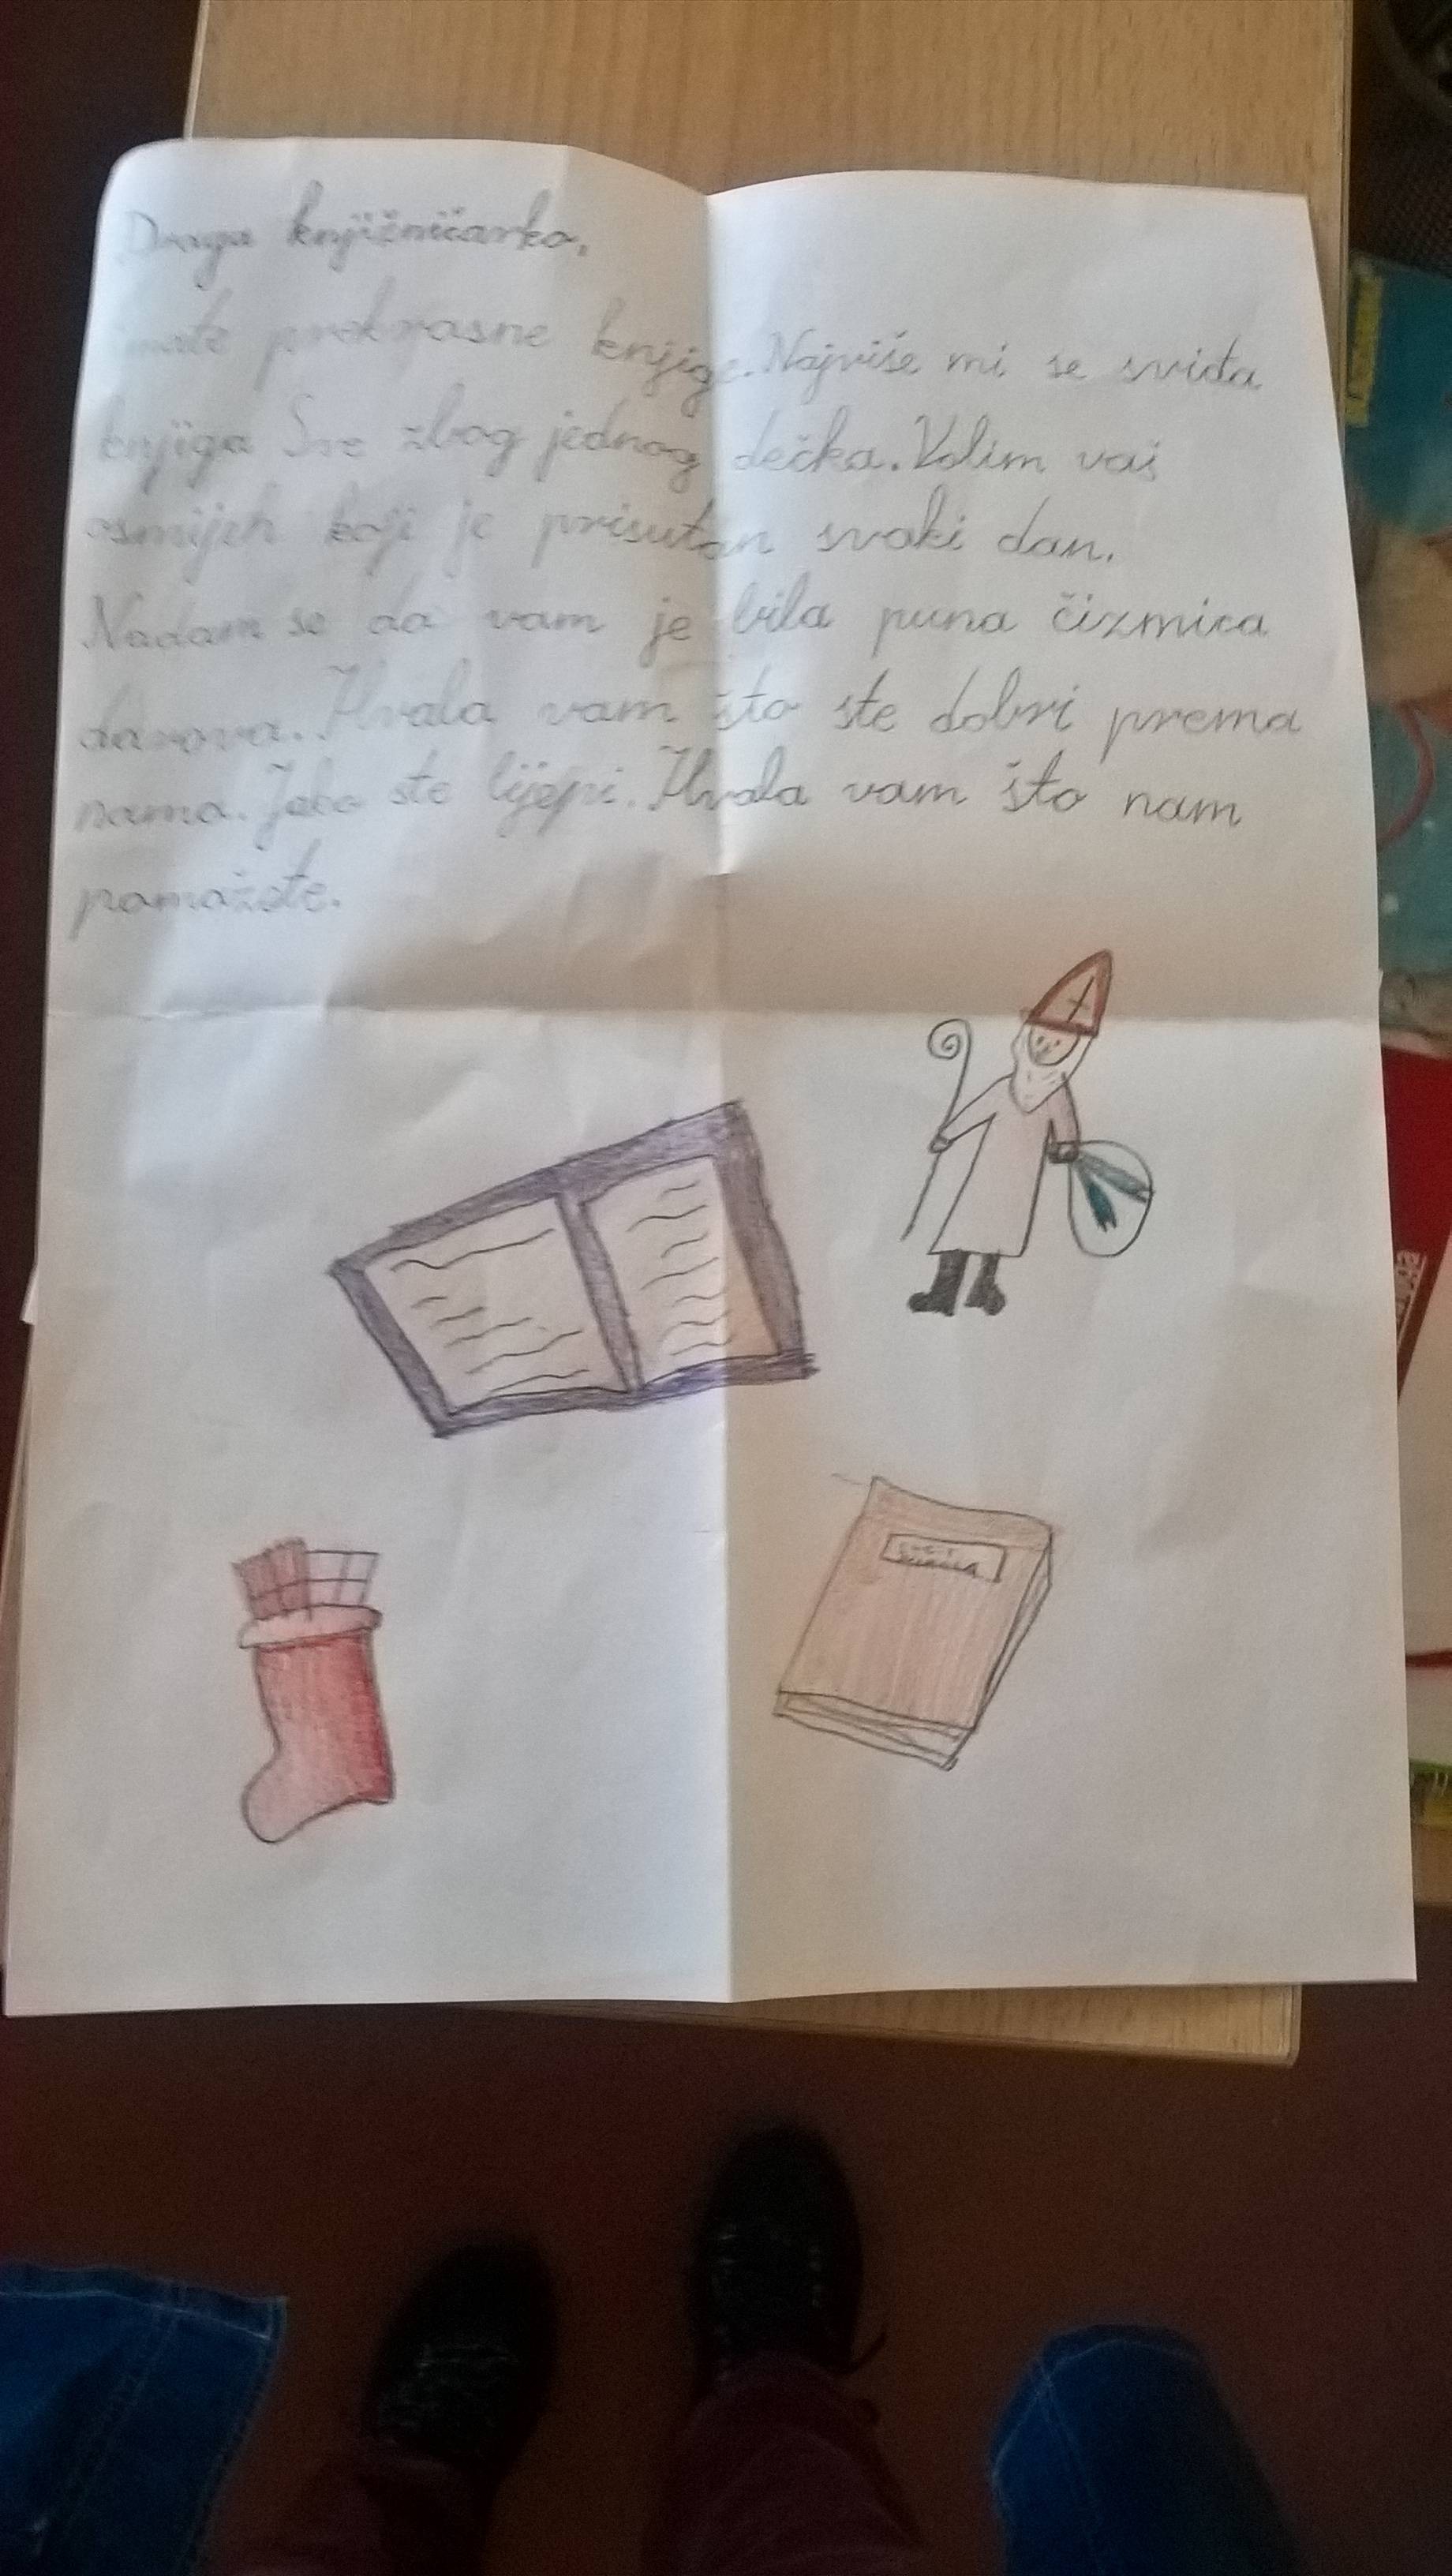 Draga knjižničarko,
imate prekrasne knjige. Najviše mi se sviđa
knjiga Sve zbog jednog dečka. Volim vaš
osmijeh koji je prisutan svaki dan.
Nadam se da vam je bila puna čizmica
darova. Hvala vam što ste dobri prema
nama. Jako ste lijepi. Hvala vam što nam
pomažete.